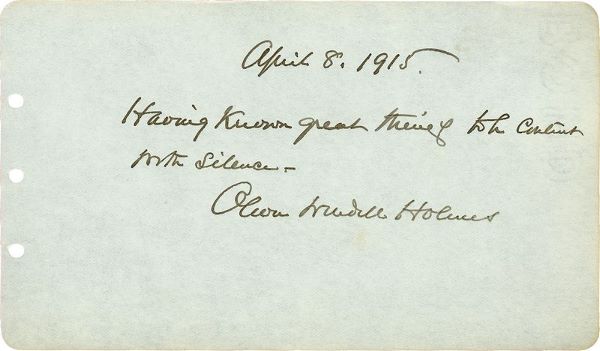 April 8. 1915.
Having known great things to be content
with silence –
Oliver Wendell Holmes